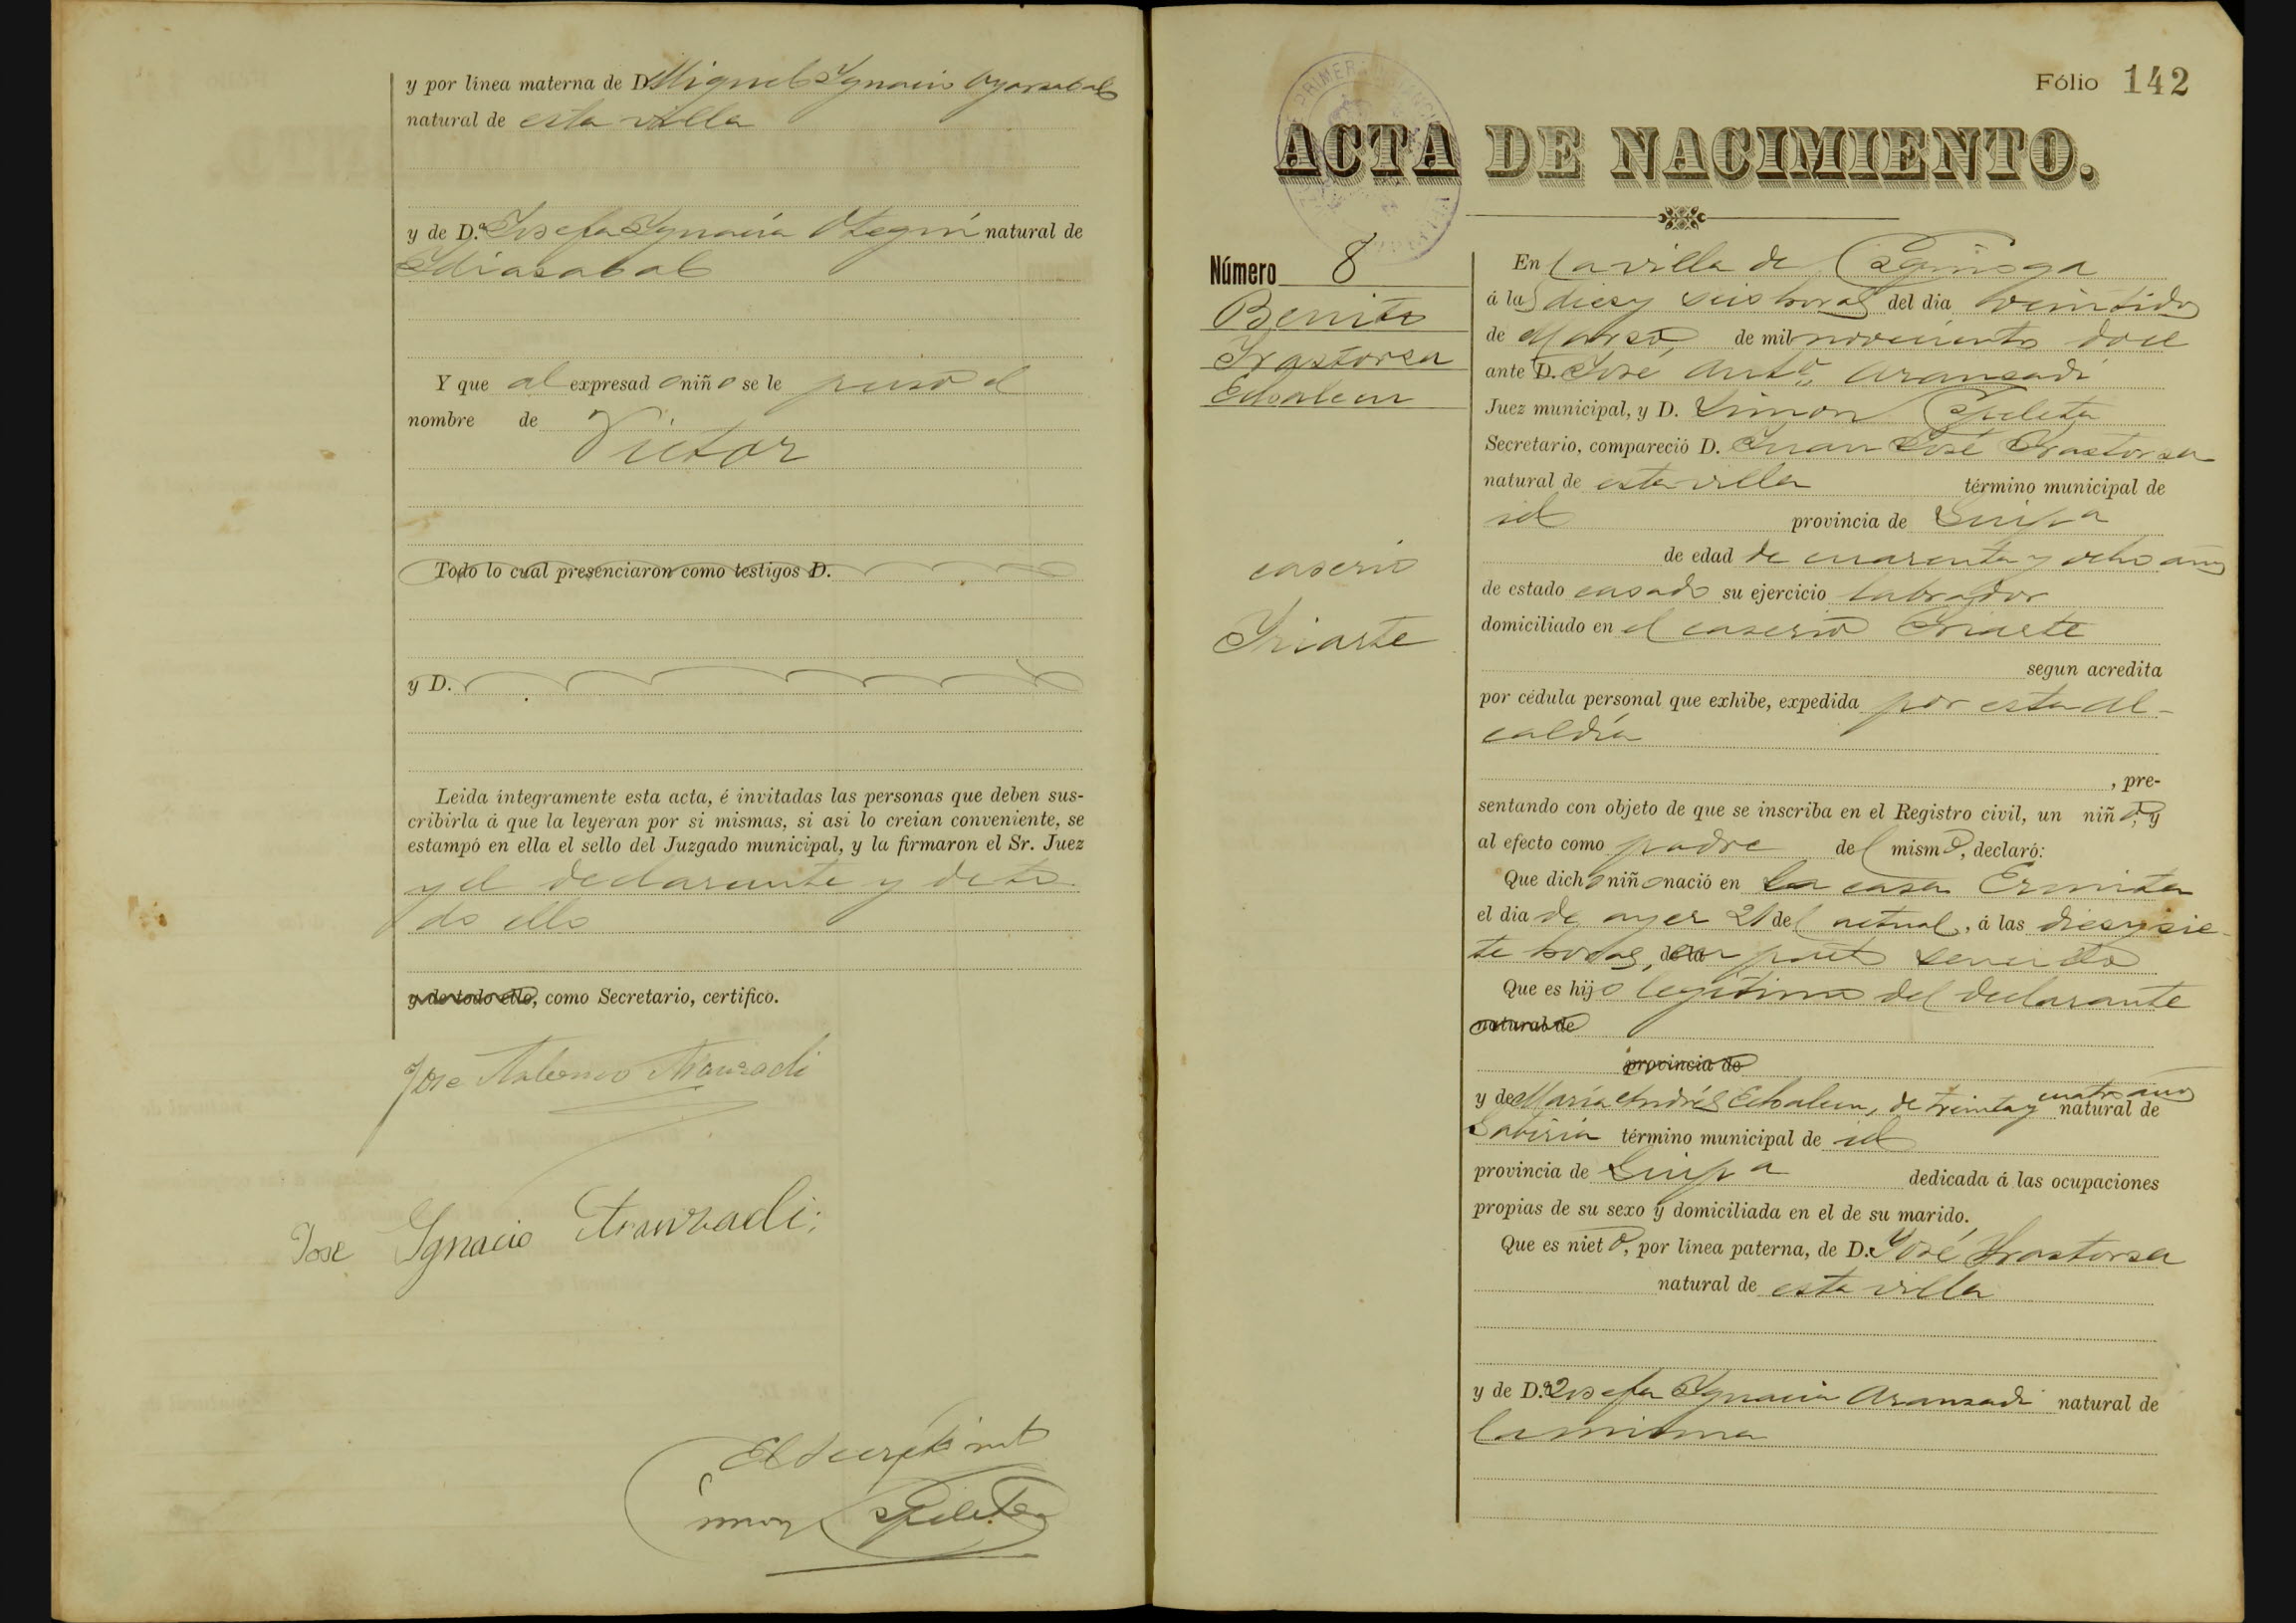 y por línea materna de D. Miguel Ygnacio Oyarzabal
natural de esta villa
y de D.ª Josefa Ygnacia Otegui natural de
Ydiazabal
Y que al expresado niño se le puso el
nombre de
Victor
Todo lo cual presenciaron como testigos D.
y D.
Leida íntegramente esta acta, é invitadas las personas que deben sus-
cribirla á que la leyeran por si mismas, si asi lo creian conveniente, se
estampó en ella el sello del Juzgado municipal, y la firmaron el Sr. Juez
y el declarante y de to
do ello
y de todo ello, como Secretario, certifico.
Jose Antonio Aranzadi
Jose Ygnacio Aranzadi
El Secret
Simon Apeleta
Fólio 142
ACTA DE NACIMIENTO.
Número 8
Benito
Yrastorza
Echaleun
caserio
Yriarte
En la villa de
á las diez y seis horas del dia veintidos
de Marzo, de mil novecientos doce
ante D. José Antº. Aranzadi
Juez municipal, y D. Simon Apeleta
Secretario, compareció D. Juan José Yrastorza
natural de esta villa término municipal de
id provincia de Guipª
de edad de cuarenta y ocho años
de estado casado su ejercicio labrador
domiciliado en el caserio Yriarte
segun acredita
por cédula personal que exhibe, expedida por esta Al-
caldía
, pre-
sentando con objeto de que se inscriba en el Registro civil, un niño, y
al efecto como padre del mismo, declaró:
Que dicho niño nació en la casa Ermita
el dia de ayer 21 del actual, á las diez y sie-
te horas, de la
Que es hijo legítimo del declarante
natural de
provincia de
y de María Andrés Echaleun, de treinta y cuatro años natural de
término municipal de id
provincia de Guipª dedicada á las ocupaciones
propias de su sexo y domiciliada en el de su marido.
Que es nieto, por línea paterna, de D. José Yrastorza
natural de esta villa
y de D.ª Josefa Ygnacia Aranzadi natural de
la misma